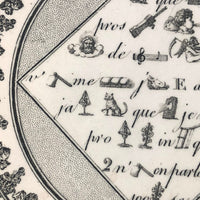 que
pros
de
v' me j E a
ja que je
pro in q
2 n' on parl